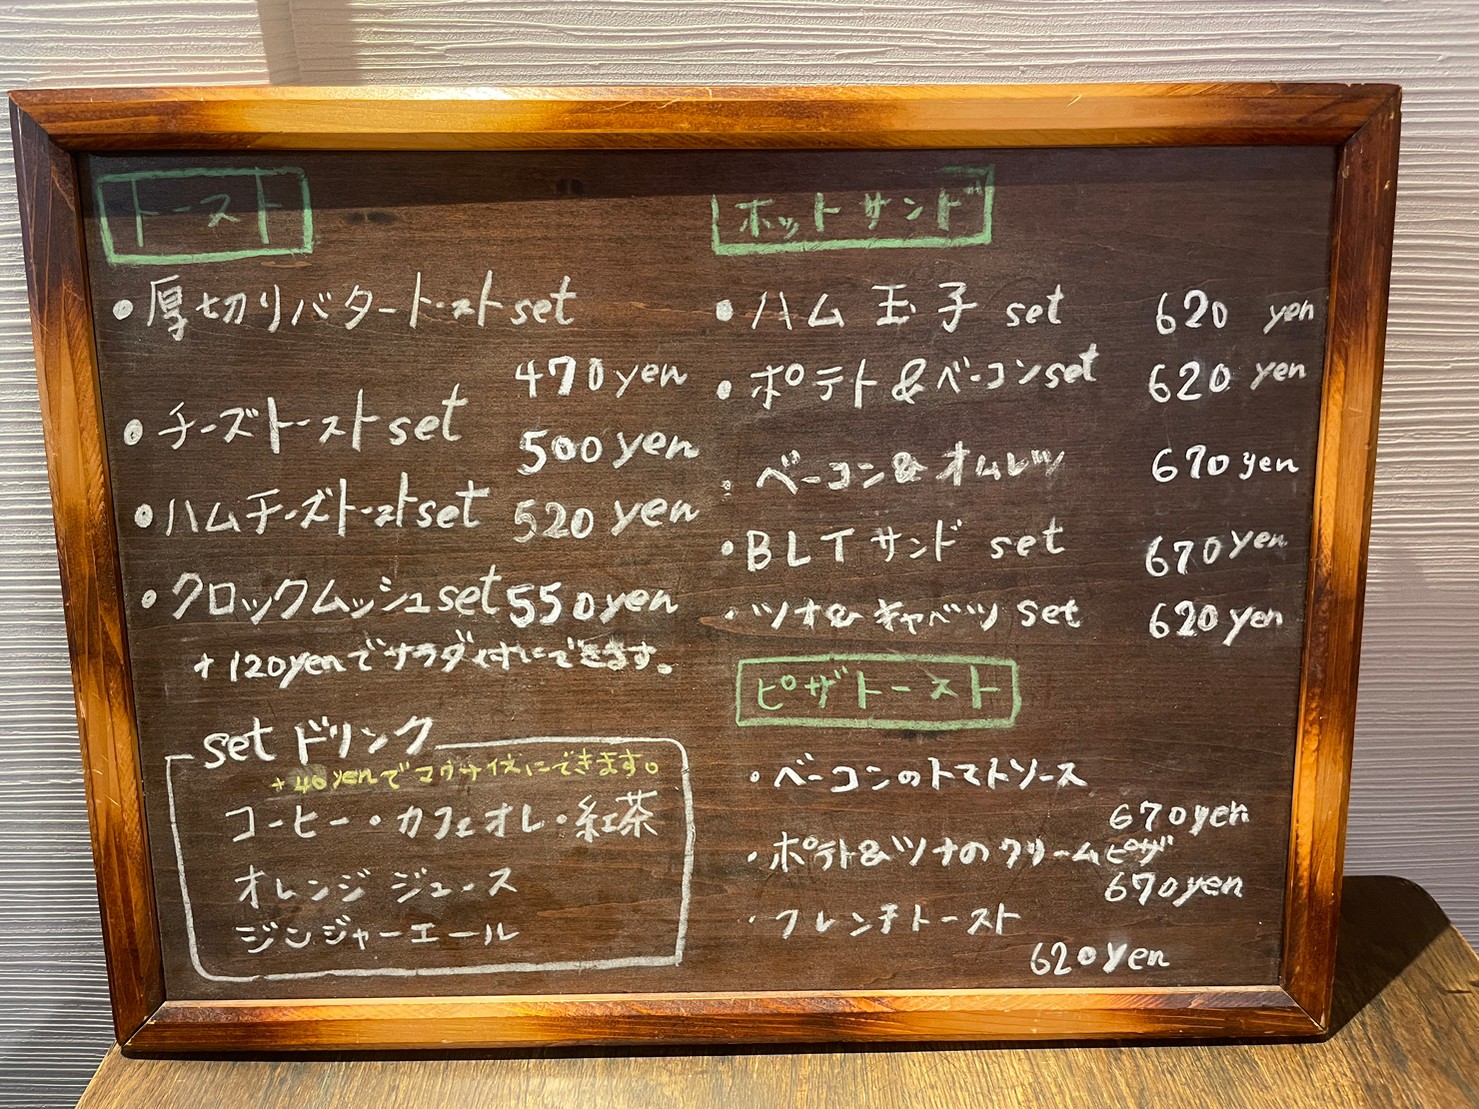 トースト
・厚切りバタートーストset
470yen
・チーズトーストset 500yen
・ハムチーズトーストset 520yen
・クロックムッシュset 550yen
+120yenでサラダ付にできます。
setドリンク
+40yenでマグサイズにできます。
コーヒー・カフェオレ・紅茶
オレンジジュース
ジンジャーエール
ホットサンド
・ハム玉子 set 620 yen
・ポテト&ベーコンset 620 yen
・ベーコン&オムレツ 670yen
・BLTサンド set 670yen
・ツナ&キャベツ set 620yen
ピザトースト
・ベーコンのトマトソース
670yen
・ポテト&ツナのクリームピザ
670yen
・フレンチトースト
620yen